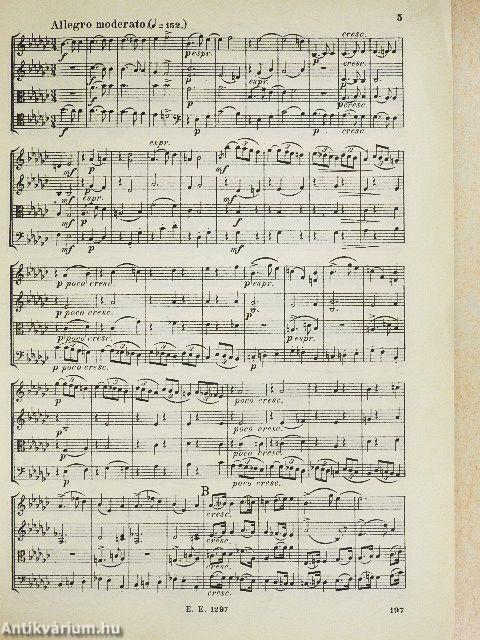 5
Allegro moderato (♩ = 152.)
cresc.
f p espr.
f p
f p p cresc.
f p p cresc.
espr.
mf p mf
mf p mf
espr.
mf p mf
mf p mf
p poco cresc. p espr.
p poco cresc. p
p poco cresc. p espr.
p poco cresc. p
poco cresc.
p poco cresc.
p poco cresc.
p poco cresc.
B
cresc.
cresc.
cresc.
cresc.
E. E. 1297 197
Antikvárium.hu